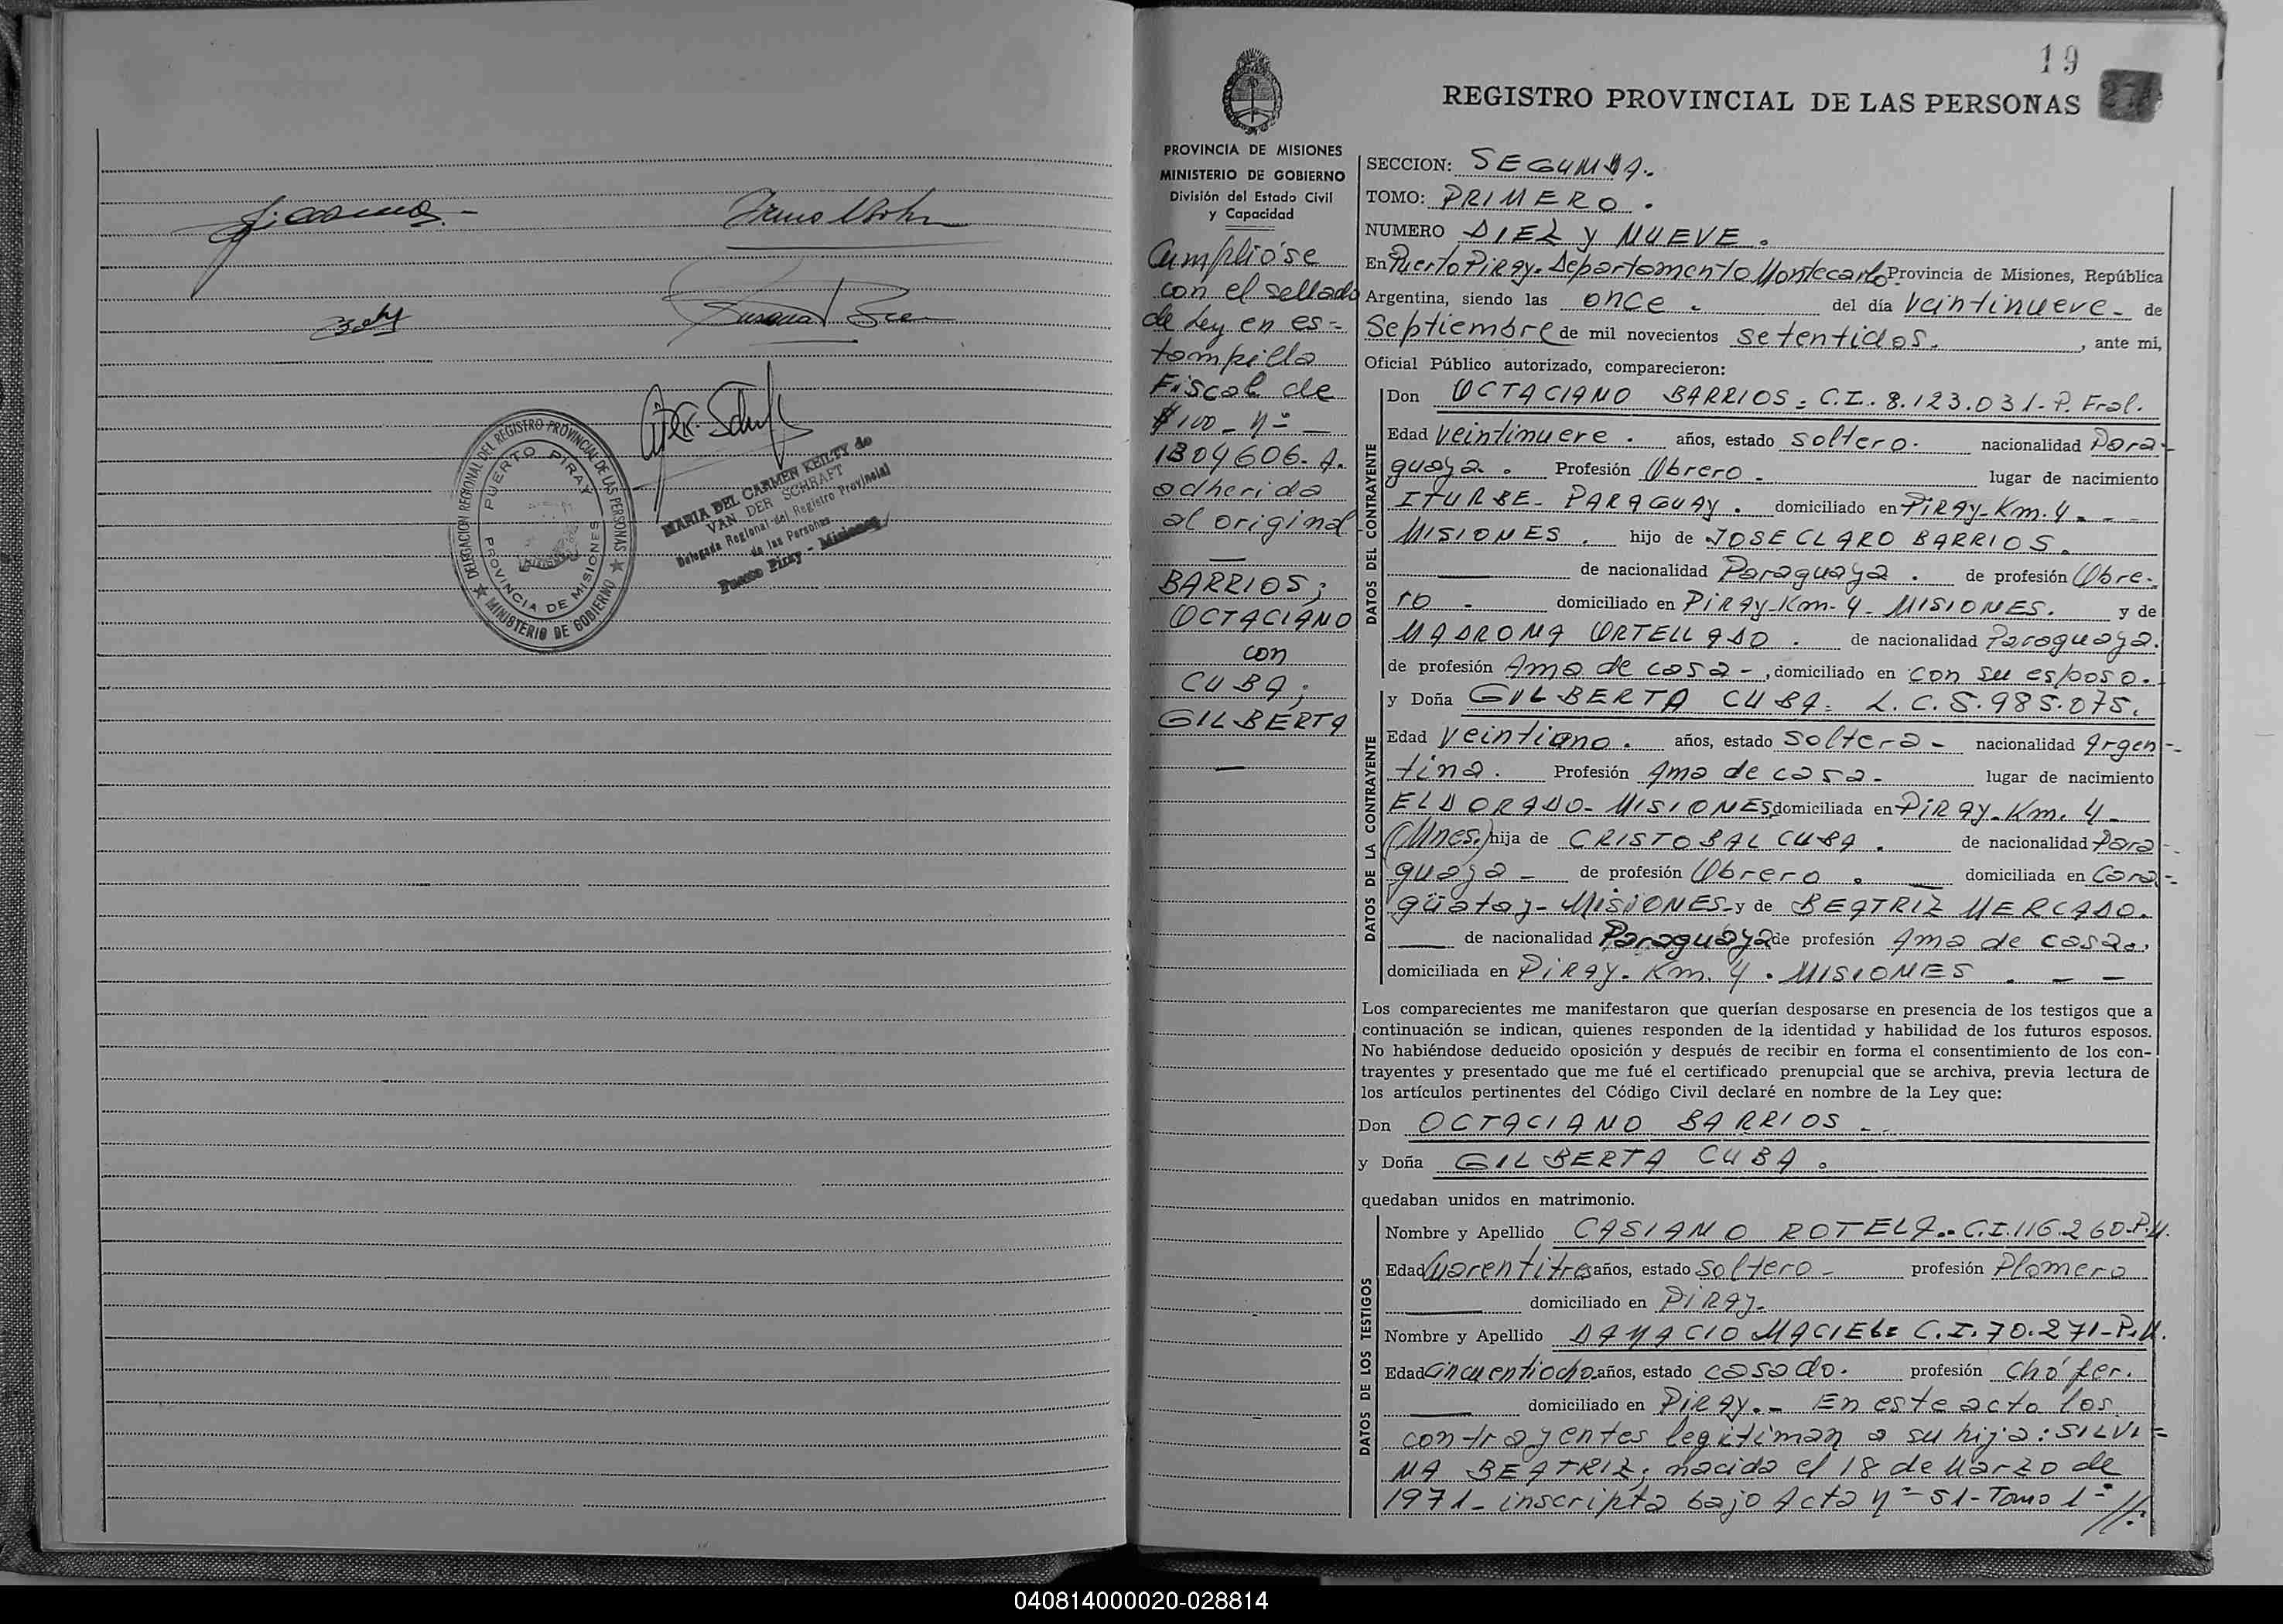 MARIA DEL CARMEN KEILTY de
VAN DER SCHRAFT
Delegada Regional del Registro Provincial
de las Personas
Puerto Piray - Misiones
DELEGACION REGIONAL DEL REGISTRO PROVINCIAL DE LAS PERSONAS
★ MINISTERIO DE GOBIERNO ★
PUERTO PIRAY
PROVINCIA DE MISIONES
19
REGISTRO PROVINCIAL DE LAS PERSONAS
PROVINCIA DE MISIONES
MINISTERIO DE GOBIERNO
División del Estado Civil
y Capacidad
Cumplióse
con el sellado
de Ley en es-
tampilla
Fiscal de
$100- Nº
1304606-A.
adherida
al original
BARRIOS;
OCTACIANO
con
CUBA;
GILBERTA
SECCION: SEGUNDA.
TOMO: PRIMERO.
NUMERO DIEZ y NUEVE.
En Puerto Piray. Departamento Montecarlo Provincia de Misiones, República
Argentina, siendo las once. del día veintinueve- de
Septiembre de mil novecientos setentidos. , ante mi,
Oficial Público autorizado, comparecieron:
DATOS DEL CONTRAYENTE
Don OCTACIANO BARRIOS: C.I. 8.123.031-P. Fral.
Edad veintinueve. años, estado soltero. nacionalidad Para-
guaya. Profesión Obrero- lugar de nacimiento
ITURBE- PARAGUAY. domiciliado en PiRAy-Km.4.--
MISIONES. hijo de JOSE CLARO BARRIOS.
de nacionalidad Paraguaya. de profesión Obre-
ro- domiciliado en PiRAy-Km-4-MISIONES. y de
MADRONA ORTELLADO. de nacionalidad Paraguaya.
de profesión Ama de casa-, domiciliado en con su esposo.
DATOS DE LA CONTRAYENTE
y Doña GILBERTA CUBA: L.C. 5.985.075.
Edad veintiuno. años, estado soltera- nacionalidad Argen-
tina. Profesión Ama de casa- lugar de nacimiento
ELDORADO-MISIONES domiciliada en PiRAy-Km.4-
(Mnes.) hija de CRISTOBAL CUBA. de nacionalidad Para-
guaya- de profesión Obrero. domiciliada en Cara-
güatay-MISIONES-y de BEATRIZ MERCADO.
de nacionalidad Paraguaya de profesión Ama de casa.,
domiciliada en PiRAy-Km.4. MISIONES.--
Los comparecientes me manifestaron que querían desposarse en presencia de los testigos que a
continuación se indican, quienes responden de la identidad y habilidad de los futuros esposos.
No habiéndose deducido oposición y después de recibir en forma el consentimiento de los con-
trayentes y presentado que me fué el certificado prenupcial que se archiva, previa lectura de
los artículos pertinentes del Código Civil declaré en nombre de la Ley que:
Don OCTACIANO BARRIOS-
y Doña GILBERTA CUBA.
quedaban unidos en matrimonio.
DATOS DE LOS TESTIGOS
Nombre y Apellido CASIANO ROTELA.- C.I.116.260-P.M.
Edad Cuarentitres años, estado soltero- profesión Plomero
domiciliado en PiRAy-
Nombre y Apellido DAMACIO MACIEL: C.I.70.271-P.M.
Edad Cincuentiocho años, estado casado. profesión chófer.
domiciliado en PiRAy.- En este acto los
contrayentes legitiman a su hija: SILVI=
NA BEATRIZ; nacida el 18 de Marzo de
1971- inscripta bajo Acta Nº 51-Tomo 1º //.
040814000020-028814